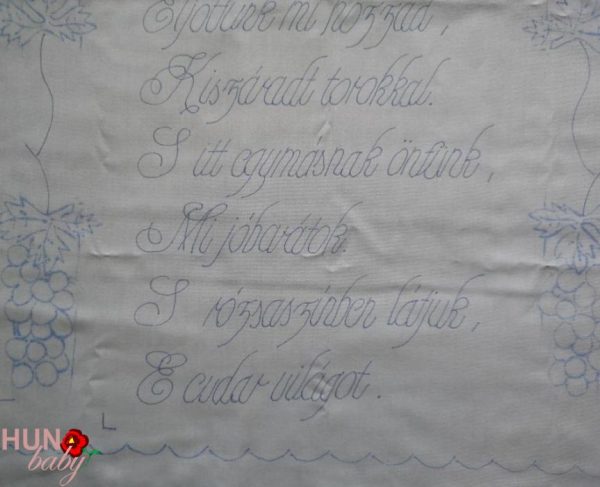 Eljöttünk mi hozzád,
Kiszáradt torokkal.
S itt egymásnak öntünk,
Mi jóbarátok.
S rózsaszínben látjuk,
E cudar világot.
HUN
baby